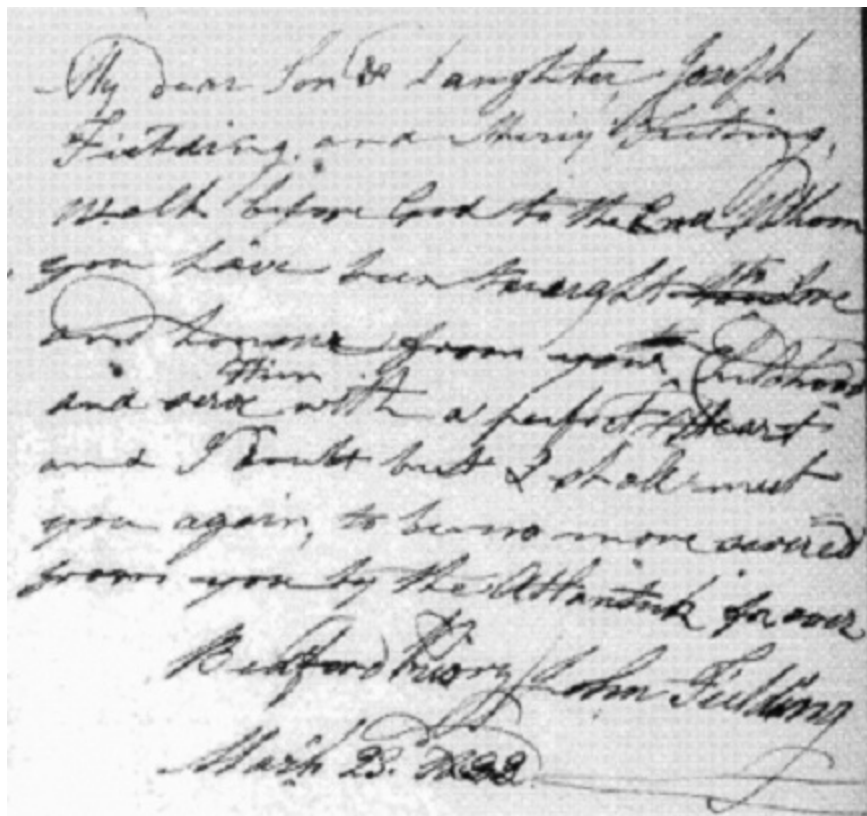 My dear Son & Daughter, Joseph
Fielding, and Mercy Fielding,
Walk before God to the End Whom
you have been taught to love
and honour from your Childhood
and serve Him with a perfect Heart
and I doubt but I shall meet
you again, to be no more severed
from you by the Atlantick for ever
Bedford Priory John Fielding
March 28.